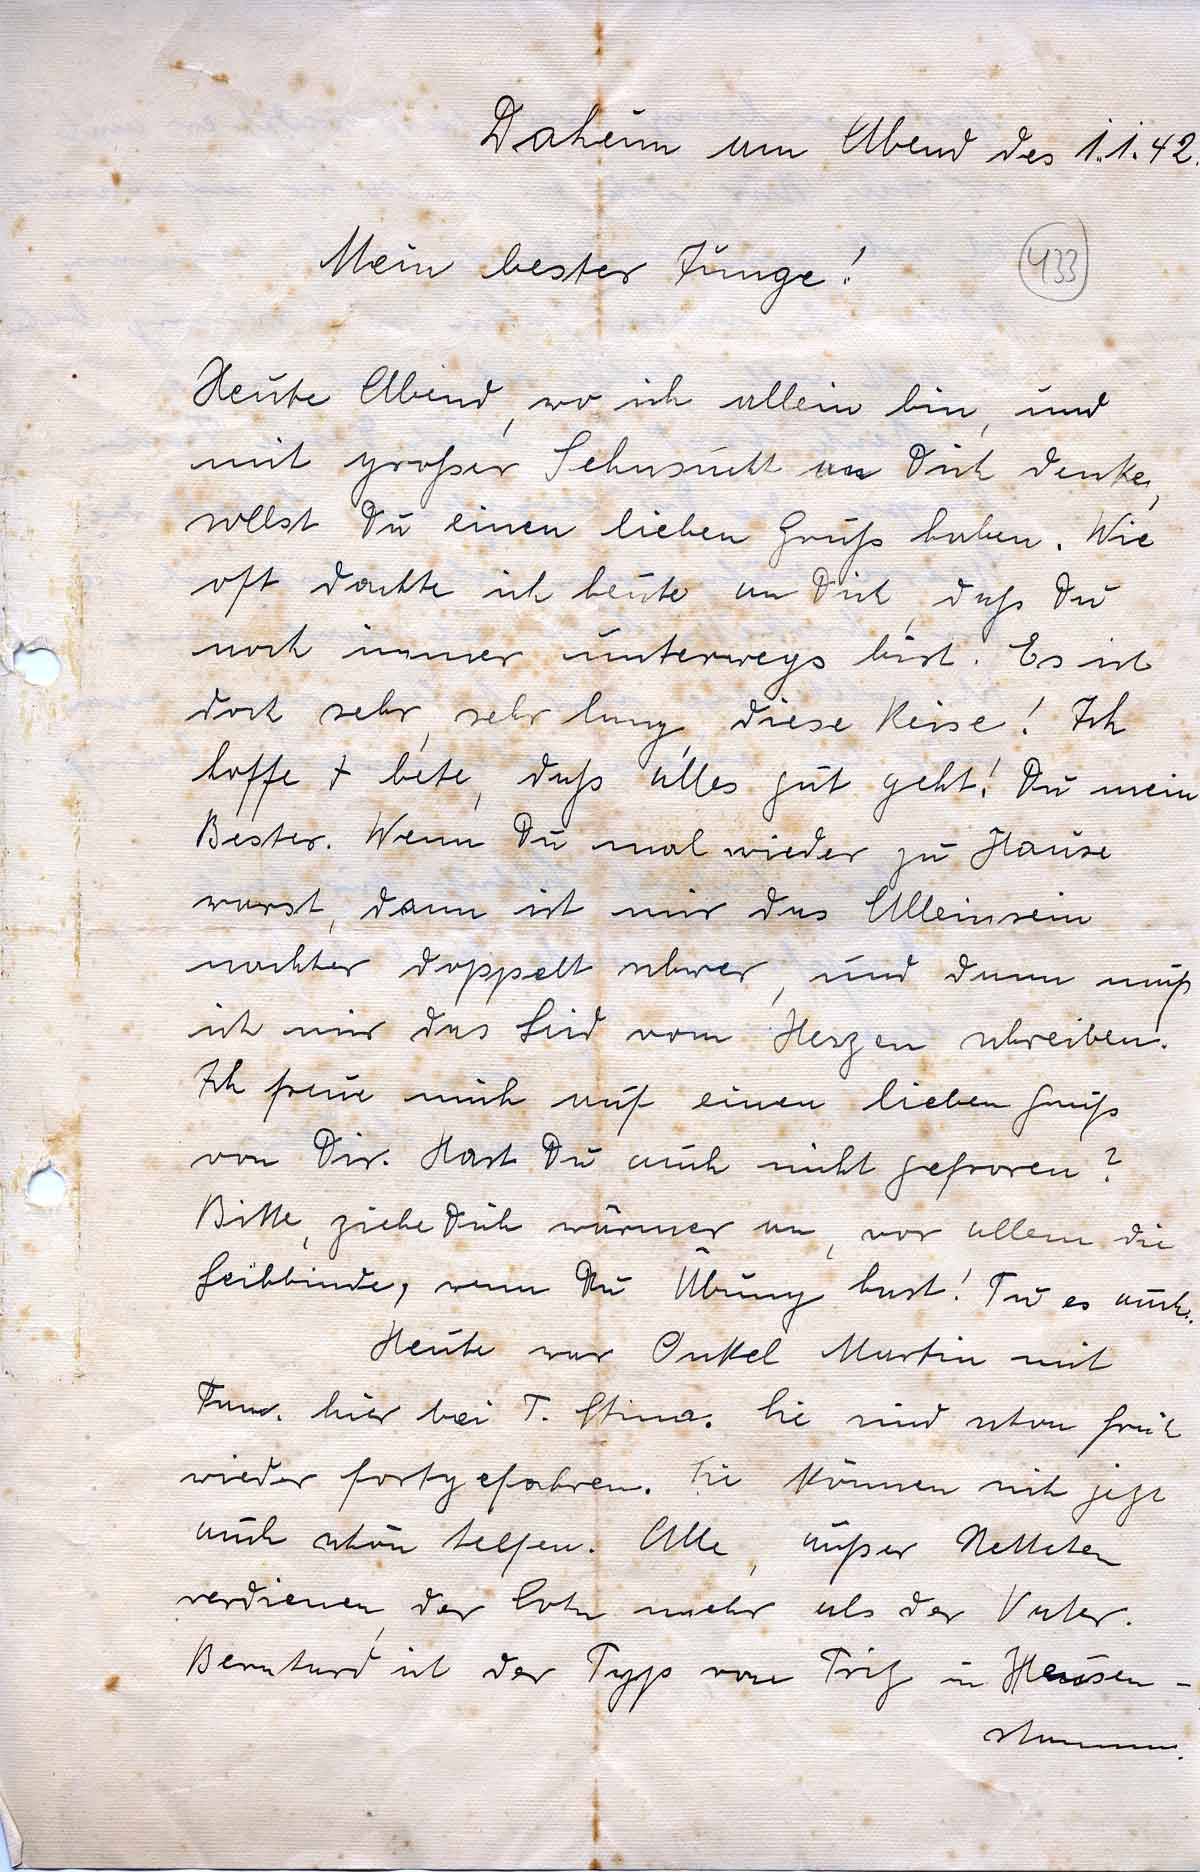 Daheim am Abend des 1.1.42.
Mein bester Junge!
433
Heute Abend, wo ich allein bin, und
mit großer Sehnsucht an Dich denke,
sollst Du einen lieben Gruß haben. Wie
oft dachte ich heute an Dich, daß Du
noch immer unterwegs bist. Es ist
doch sehr, sehr lang, diese Reise! Ich
hoffe + bete, daß alles gut geht! Du mein
Bester. Wenn Du mal wieder zu Hause
warst, dann ist mir das Alleinsein
nachher doppelt schwer, und dann muß
ich mir das Leid vom Herzen schreiben.
Ich freue mich auf einen lieben Gruß
von Dir. Hast Du auch nicht gefroren?
Bitte, ziehe Dich wärmer an, vor allem die
Leibbinde, wenn Du Übung hast! Tu es auch.
Heute war Onkel Martin mit
Fam. hier bei T. Stina. Sie sind schon früh
wieder fortgefahren. Sie können sich jetzt
auch schön helfen. Alle, außer
verdienen, der Sohn mehr als der Vater.
Bernhard ist der Typ vom Fritz in Heusen-
stamm.